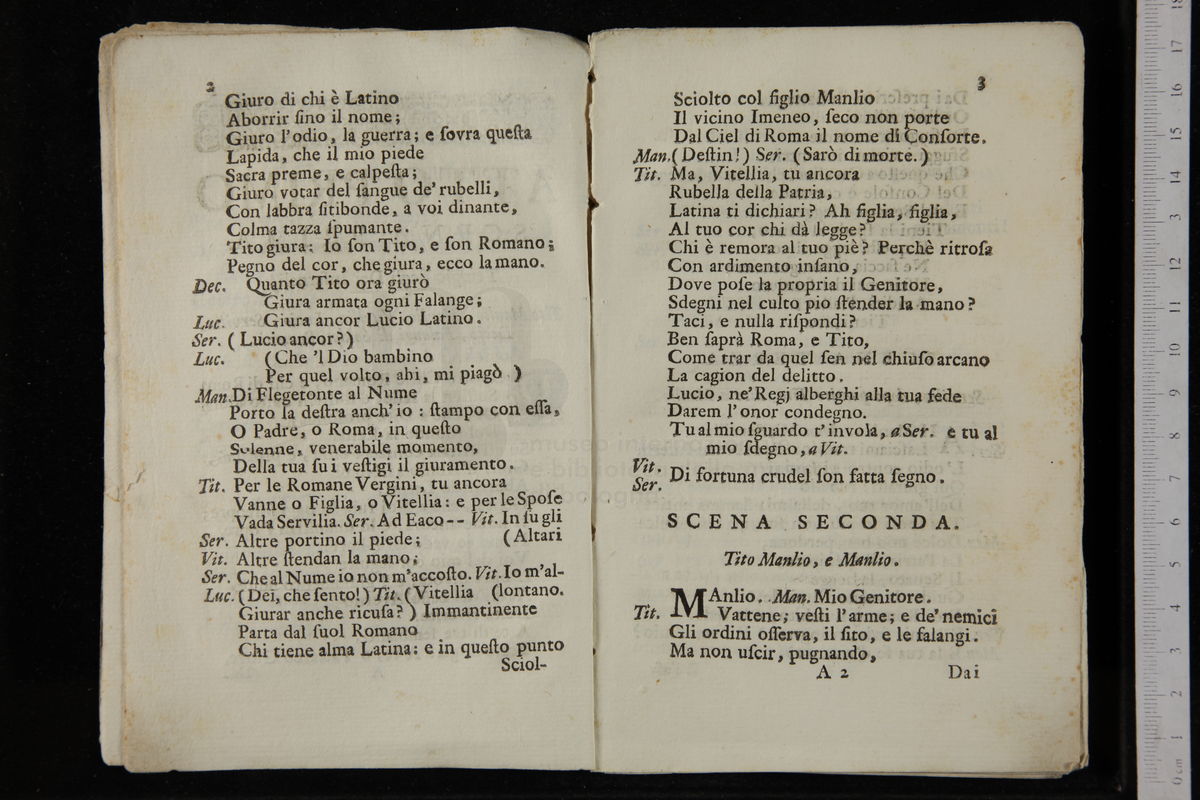 2
Giuro di chi è Latino
Aborrir ſino il nome;
Giuro l'odio, la guerra; e ſovra queſta
Lapida, che il mio piede
Sacra preme, e calpeſta;
Giuro votar del ſangue de' rubelli,
Con labbra ſitibonde, a voi dinante,
Colma tazza ſpumante.
Tito giura: Io ſon Tito, e ſon Romano;
Pegno del cor, che giura, ecco la mano.
Dec. Quanto Tito ora giurò
Giura armata ogni Falange;
Luc. Giura ancor Lucio Latino.
Ser. (Lucio ancor?)
Luc. (Che 'l Dio bambino
Per quel volto, ahi, mi piagò.)
Man. Di Flegetonte al Nume
Porto la deſtra anch' io: ſtampo con eſſa,
O Padre, o Roma, in queſto
Solenne, venerabile momento,
Della tua ſu i veſtigi il giuramento.
Tit. Per le Romane Vergini, tu ancora
Vanne o Figlia, o Vitellia: e per le Spoſe
Vada Servilia. Ser. Ad Eaco -- Vit. In ſu gli
Ser. Altre portino il piede; (Altari
Vit. Altre ſtendan la mano;
Ser. Che al Nume io non m'accoſto. Vit. Io m'al-
Luc. (Dei, che ſento!) Tit. (Vitellia (lontano.
Giurar anche ricuſa?) Immantinente
Parta dal ſuol Romano
Chi tiene alma Latina: e in queſto punto
Sciol-
3
Sciolto col figlio Manlio
Il vicino Imeneo, ſeco non porte
Dal Ciel di Roma il nome di Conſorte.
Man. (Deſtin!) Ser. (Sarò di morte.)
Tit. Ma, Vitellia, tu ancora
Rubella della Patria,
Latina ti dichiari? Ah figlia, figlia,
Al tuo cor chi dà legge?
Chi è remora al tuo piè? Perchè ritroſa
Con ardimento inſano,
Dove poſe la propria il Genitore,
Sdegni nel culto pio ſtender la mano?
Taci, e nulla riſpondi?
Ben ſaprà Roma, e Tito,
Come trar da quel ſen nel chiuſo arcano
La cagion del delitto.
Lucio, ne' Regj alberghi alla tua fede
Darem l'onor condegno.
Tu al mio ſguardo t'invola, a Ser. e tu al
mio ſdegno, a Vit.
Vit.
Ser. Di fortuna crudel ſon fatta ſegno.
SCENA SECONDA.
Tito Manlio, e Manlio.
Tit. MAnlio. Man. Mio Genitore.
Vattene; veſti l'arme; e de' nemici
Gli ordini oſſerva, il ſito, e le falangi.
Ma non uſcir, pugnando,
A 2 Dai